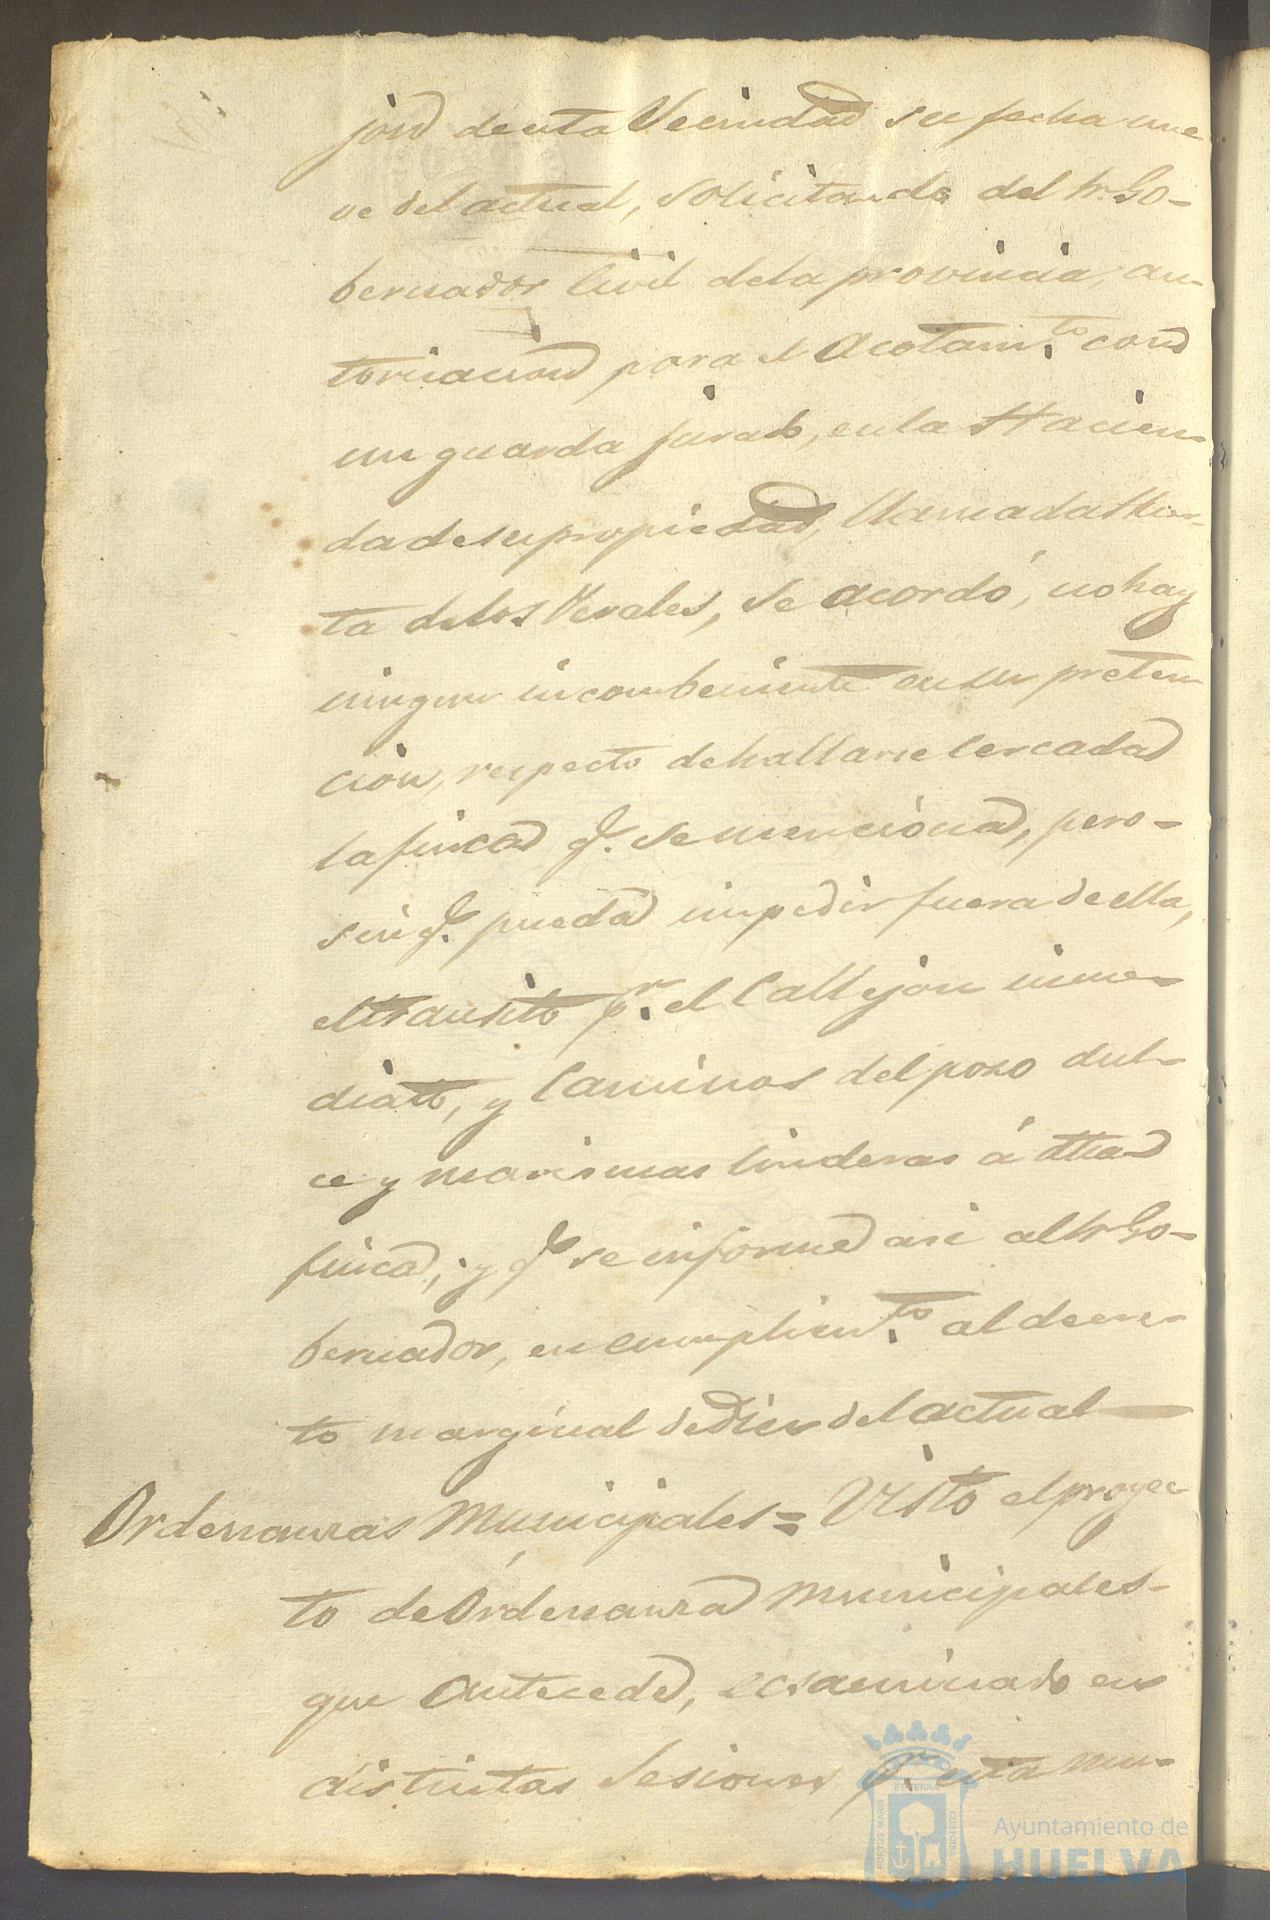 jon de esta Vecindad su fecha nue
ve del actual, solicitando del Sr. Go-
bernador Civil de la provincia, au-
torisacion para el Acotam.to con
un guarda jurado, en la Hacien-
da de su propiedad, llamada Huer-
ta de los Perales, se acordó, no hay
ningun incombeniente en su preten
cion, respecto de hallarse cercada
la finca q.e se menciona, pero-
sin q.e pueda impedir fuera de ella,
el transito p.r el Callejon inme-
diato, y Caminos del pozo dul-
ce y marismas linderas á dha
finca, y q.e se informe asi al Sr Go-
bernador, en cumplim.to al decre-
to marginal de diez del actual
Ordenanzas Municipales = Visto el proyec
to de Ordenanza Municipales-
que antecede, ecsaminado en
distintas Sesiones p.r esta Mu-
PORTUS MARIS ET TERRÆ CUSTODIA
Ayuntamiento de
HUELVA